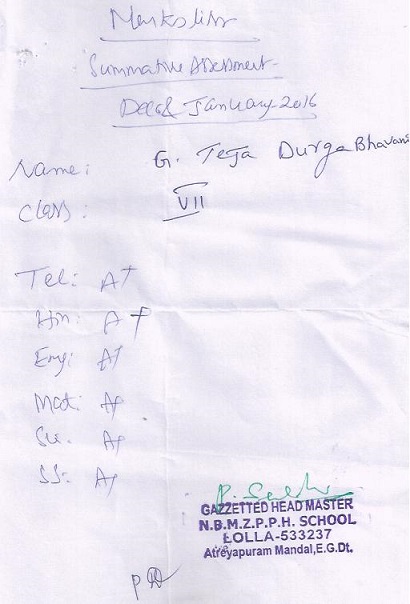 Marks list
Summative Assessment
Dec & January-2016
Name: G. Teja Durga Bhavani
Class: VII
Tel: A+
Hin: A+
Eng: A+
Mat: A+
Sci: A+
SS: A+
GAZZETTED HEAD MASTER
N.B.M.Z.P.P.H. SCHOOL
LOLLA-533237
Atreyapuram Mandal,E.G.Dt.